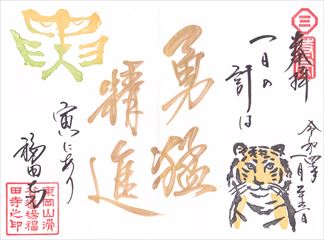 奉拝
一日の計は
令和四年
一月
勇猛
精進
寅にあり
福田寺
東岡山滑
谷稲場福
田寺之印